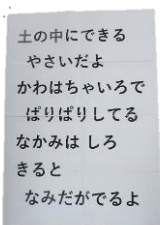 土の中にできる
やさいだよ
かわはちゃいろで
ぱりぱりしてる
なかみは しろ
きると
なみだがでるよ